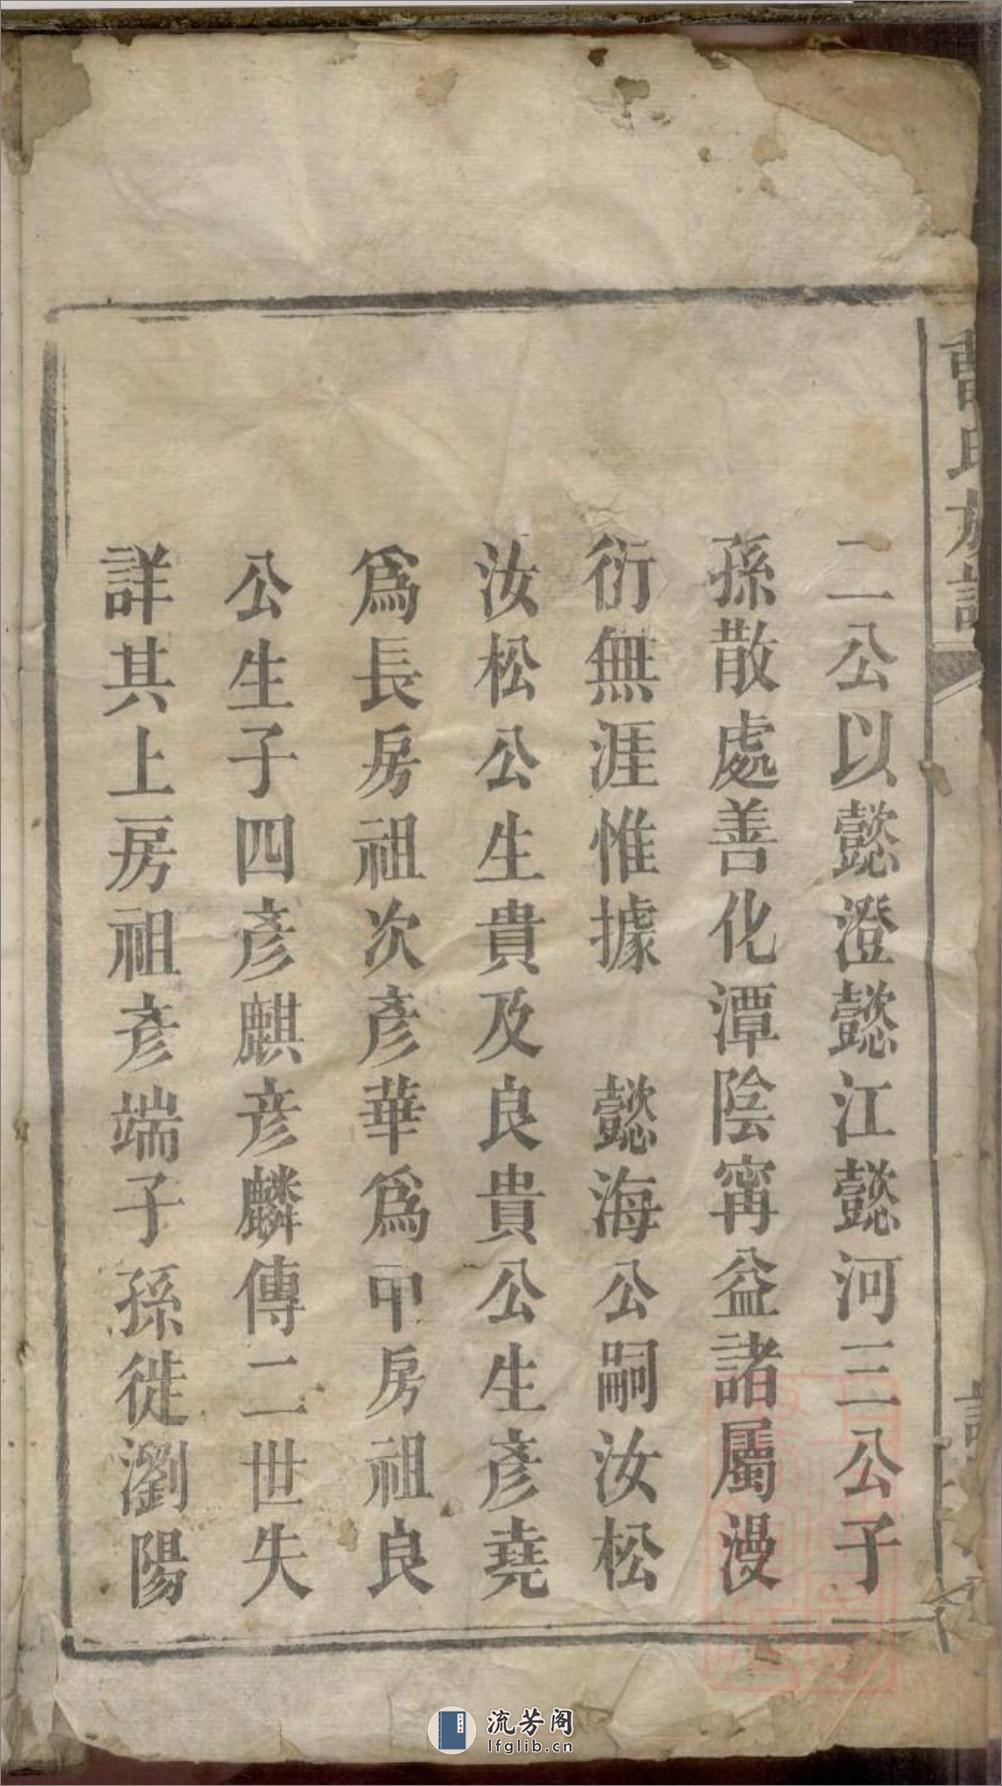 曹氏族譜
二公以懿澄懿江懿河三公子
孫散處善化潭陰甯益諸屬漫
衍無涯惟據　懿海公嗣汝松
汝松公生貴及良貴公生彥堯
爲長房祖次彥華爲甲房祖良
公生子四彥麒彥麟傳二世失
詳其上房祖彥端子孫徙瀏陽
流芳阁
lfglib.cn